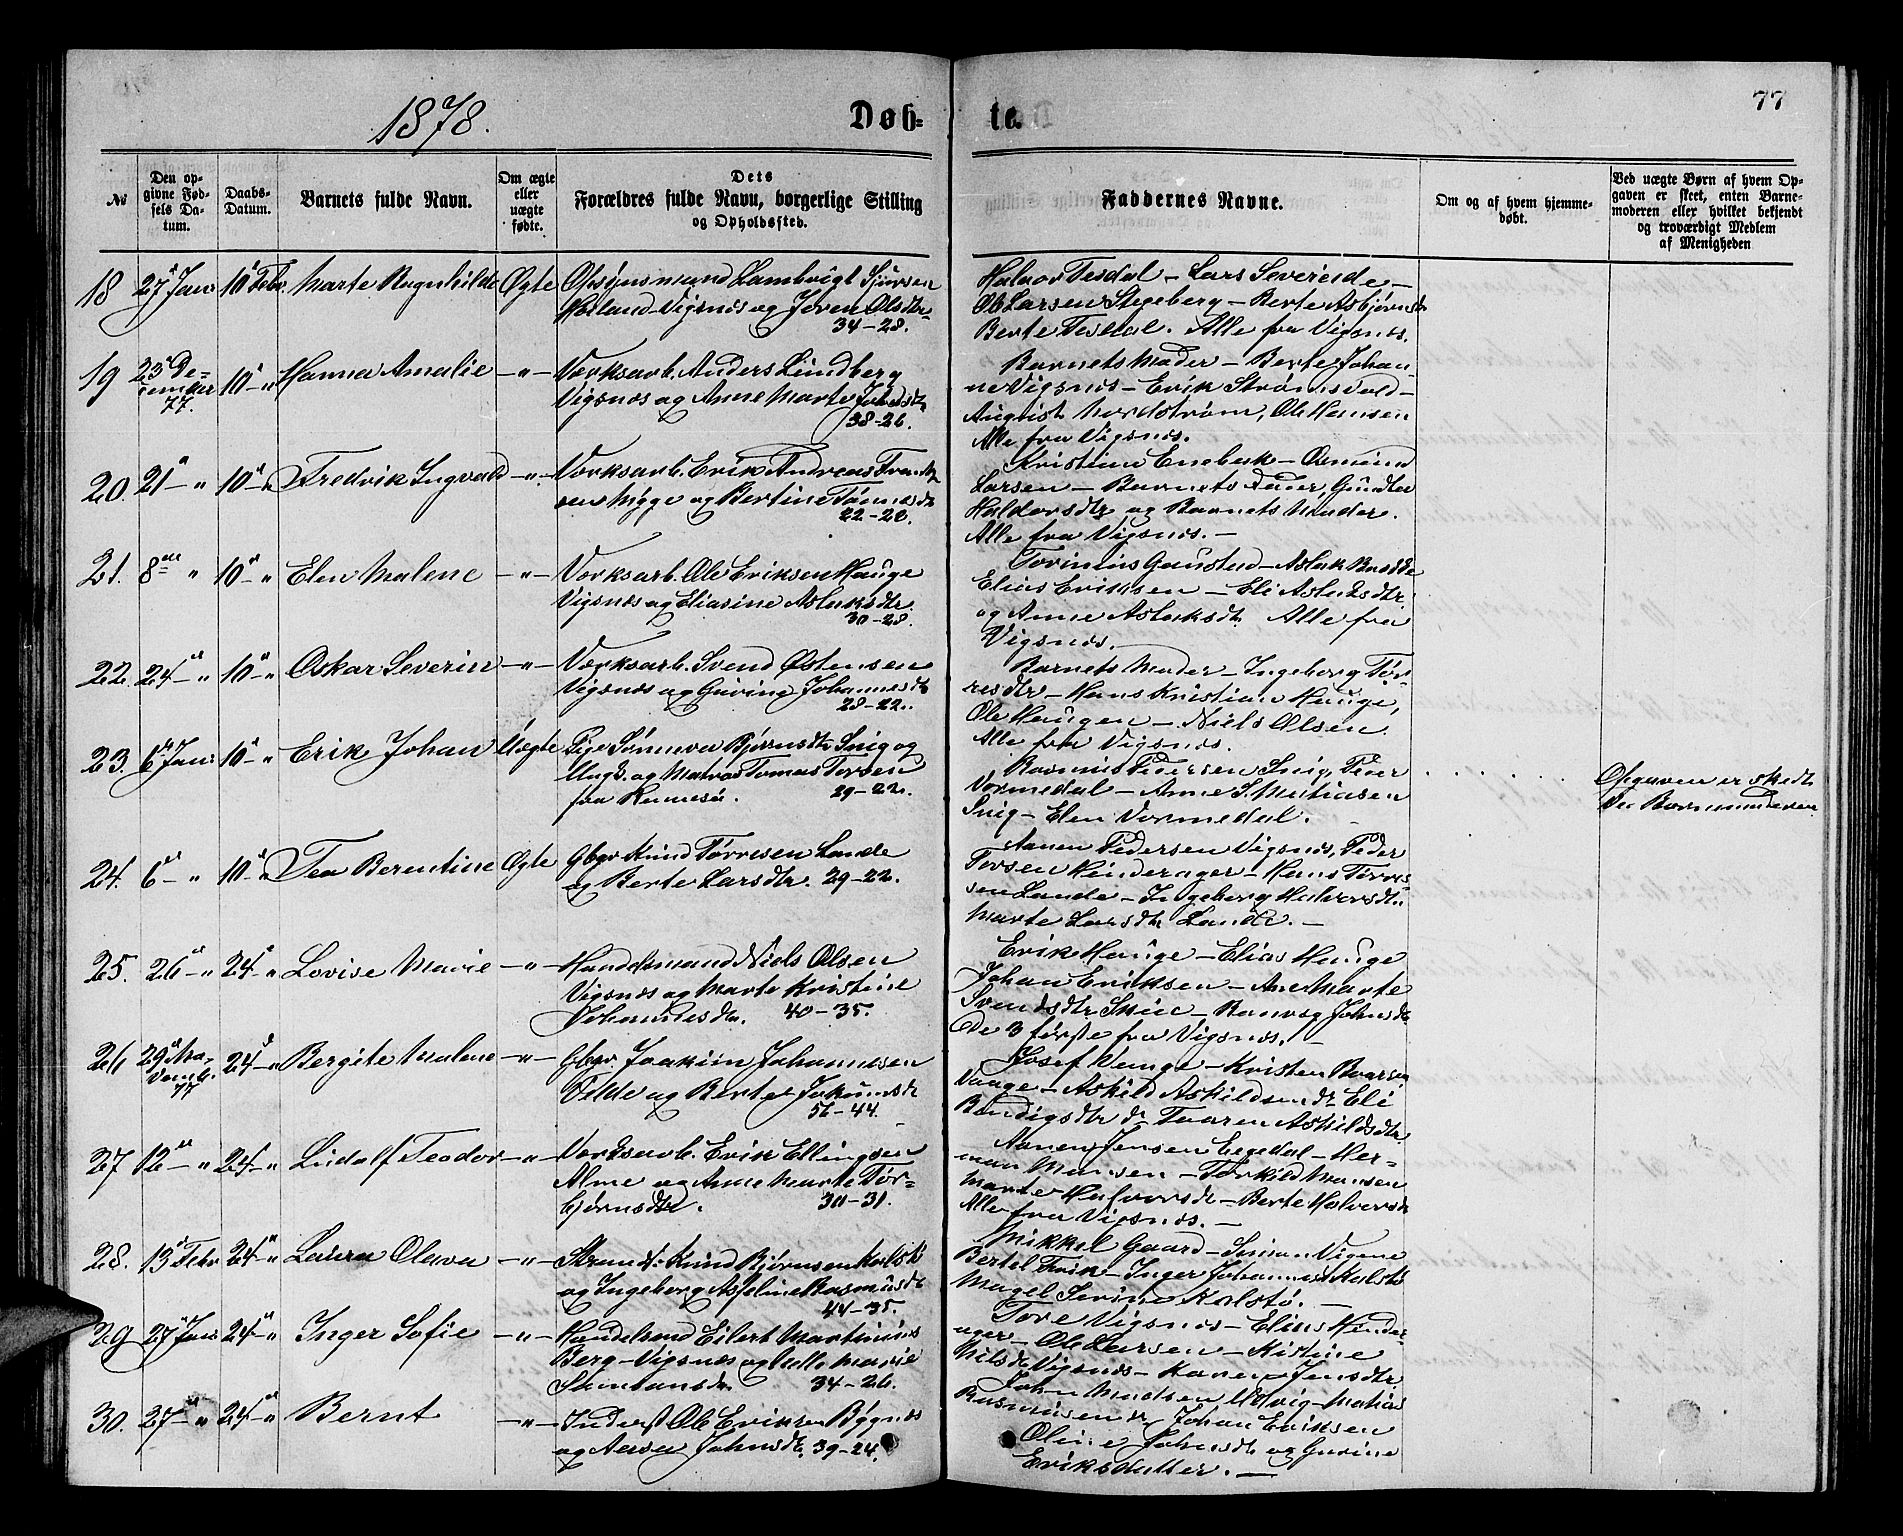 1878.
Døb-
te.
77
№
Den op-
givne Fød-
sels Da-
tum.
Daabs-
Datum.
Barnets fulde Navn.
Om ægte
eller
uægte
fødte.
Dets
Forældres fulde Navn, borgerlige Stilling
og Opholdssted.
Faddernes Navne.
Om og af hvem hjemme-
døbt.
Ved uægte Børn af hvem Op-
gaven er skeet, enten Barne-
moderen eller hvilket bekjendt
og troværdigt Medlem
af Menigheden
18 27 Jan 10 Febr. Marte Ragnhilde Ægte Opsynsmand Lambrigt Sjursen
Høiland Vigsnæs og Joren Olsdtr
34-28.
Halvor Tesdal - Lars Severeide -
Ole Larsen Stegeberg - Berte Asbjørnsdtr
Berte Tesdal. Alle fra Vigsnæs.
19 23 De-
cember
77. 10 - " Hanna Amalie - " - Værksarb. Anders Lundberg
Vigsnæs og Anne Marte Johsdtr
38-26.
Barnets Moder - Berte Johan-
ne Vigsnæs - Erik Strømsvold -
August Nordstrøm, Ole Hansen
Alle fra Vigsnæs.
20. 21 - " 10 - " Fredrik Ingvald - " - Værksarb. Erik Andreas Frants
sen Nygge og Bertine Tønnesdtr
22-28.
Kristian Enebesk - Osmund
Larsen - Barnets Fader, Gundla
Haldorsdtr og Barnets Moder.
Alle fra Vigsnæs. -
21. 8de " 10 " Elen Malene - " - Værksarb. Ole Eriksen Hauge
Vigsnæs og Eliasine Aslaksdtr
30-28.
Torinius Gaustad - Aslak Bredde
Elias Eriksen - Eli Aslaksdtr
og Anne Aslaksdtr Alle fra
Vigsnæs.
22. 24 - " 10 - " Oskar Severin - " - Værksarb. Svend Østensen
Vigsnæs og Guring Johannesdtr
28-22.
Barnets Moder - Ingeborg Tør-
resdtr - Hans Kristian Hauge,
Ole Haugen - Niels Olsen
Alle fra Vigsnæs.
23. 6 Jan 10 - " Erik Johan Uægte Pige Sønneva Bjørnsdtr Snig og
Ungk. og Matros Tomas Torsen
fra Rennesø. 29-22.
Rasmus Pedersen Snig, Peder
Vormedal - Anne S. Matiasen
Snig - Elen Vormedal.
Opgaven er skedt
ved Barnemoderen
24. 6 - " 10 - " Tea Berentine Ægte Gbgr Knud Tørresen Lande
og Berte Larsdtr. 29-22.
Aanen Pedersen Vigsnæs, Peder
Torsen Hinderager - Hans Tørres-
sen Lande - Ingeborg Halvorsdtr.
Marte Larsdtr Lande. -
25. 26 - " 24 - " Lovise Marie - " - Handelsmand Niels Olsen
Vigsnæs og Marte Kristine
Johannesdtr. 40-35.
Erik Hauge - Elias Hauge
Johan Eriksen - Ane Marte
Svendsdtr - Ranveg Johnsdtr
De 3 første fra Vigsnæs. -
26 29 No-
vemb.
77 24 - " Bergite Malene - " - Gbgr. Joakim Johannesen
Velde og Berte Jokumsdtr
56-44.
Josef Vaage - Kristen
Vaage - Askild Askildsen Eli
Bendigsdtr Taaren Askildsdtr
27 12 - " 24 - " Ludolf Teodor - " - Værksarb. Erik Ellingsen
Alme og Anne Marte Tør-
bjørnsdtr. 30-31.
Aanen Jensen Eegedal - Her-
man Monsen - Torkild Monsen
Marte Halvorsdtr - Berte Halvorsdtr
Alle fra Vigsnæs. -
28. 13 Febr 24 - " Laura Olava - " - Strands. Knud Bjørnsen Kalstø
og Ingeborg Asseline Rasmusdtr
44-35.
Mikkel Gaard - Simon Vigene
Bertel Feøen - Inger Johannesdtr Kalstø
Magel Serine Kalstø. -
29 27 Jan 24 - " Inger Sofie - " - Handelsmd Eilert Martinius
Berg - Vigsnæs og Marie
34-26.
Tore Vigsnæs - Elias Hinder-
ager - Ole Larsen - Kistine
Nilsdtr Vigsnæs - Karen Jensdtr
30. 27 - " 24 - " Bernt - " - Inderst Ole Eriksen Bygnæs
og Aasa Johnsdtr. 39-24.
John Madsen Udvig - Matias
Rasmusen Johan Eriksen
Oline Johnsdtr og Gurine
Eriksdatter. -